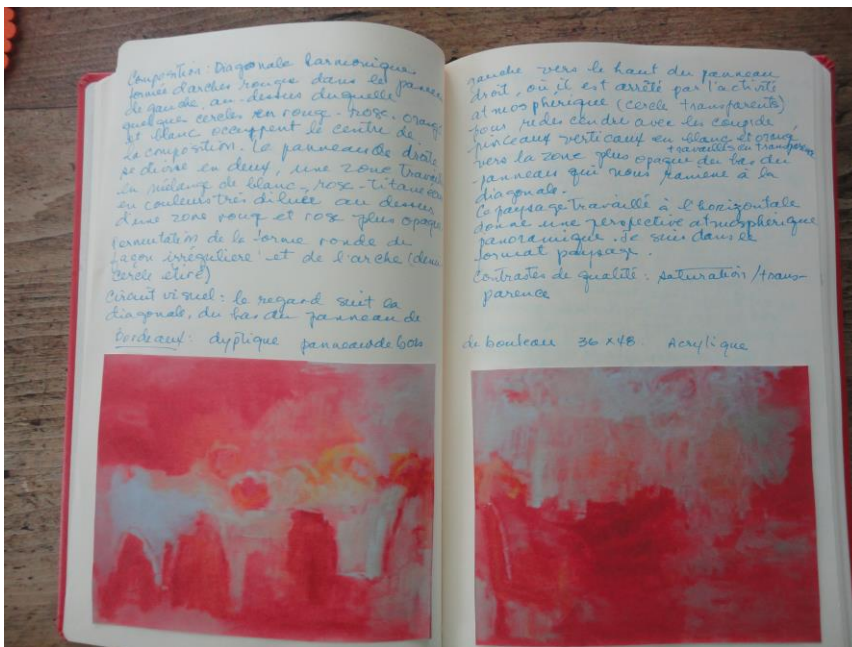 Composition: Diagonale harmonique
formée d'arches rouges dans le panneau
de gauche, au-dessus duquelle
quelques cercles en rouge-rose-orangé
et blanc occupent le centre de
la composition. Le panneau de droite
se divise en deux, une zone travaillé
en mélange de blanc, rose-titane
en couleurs très diluée au dessus
d'une zone rouge et rose plus opaque
Permutation de la forme ronde de
façon irrégulière et de l'arche (demi
cercle étiré)
Circuit visuel: le regard suit la
diagonale, du bas du panneau de
bordeaux: dyptique panneaux de bois
gauche vers le haut du panneau
droit, où il est arrêté par l'activité
atmosphérique (cercle transparents)
pour redescendre avec les coups de
pinceaux verticaux en blanc et orangé
travaillés en transparence
vers la zone plus opaque du bas du
panneau qui nous ramène à la
diagonale.
Ce paysage travaillé à l'horizontale
donne une perspective atmosphérique
panoramique. Je suis dans le
format paysage.
Contrastes de qualité: saturation/trans-
parence
de bouleau 36 x 48 Acrylique